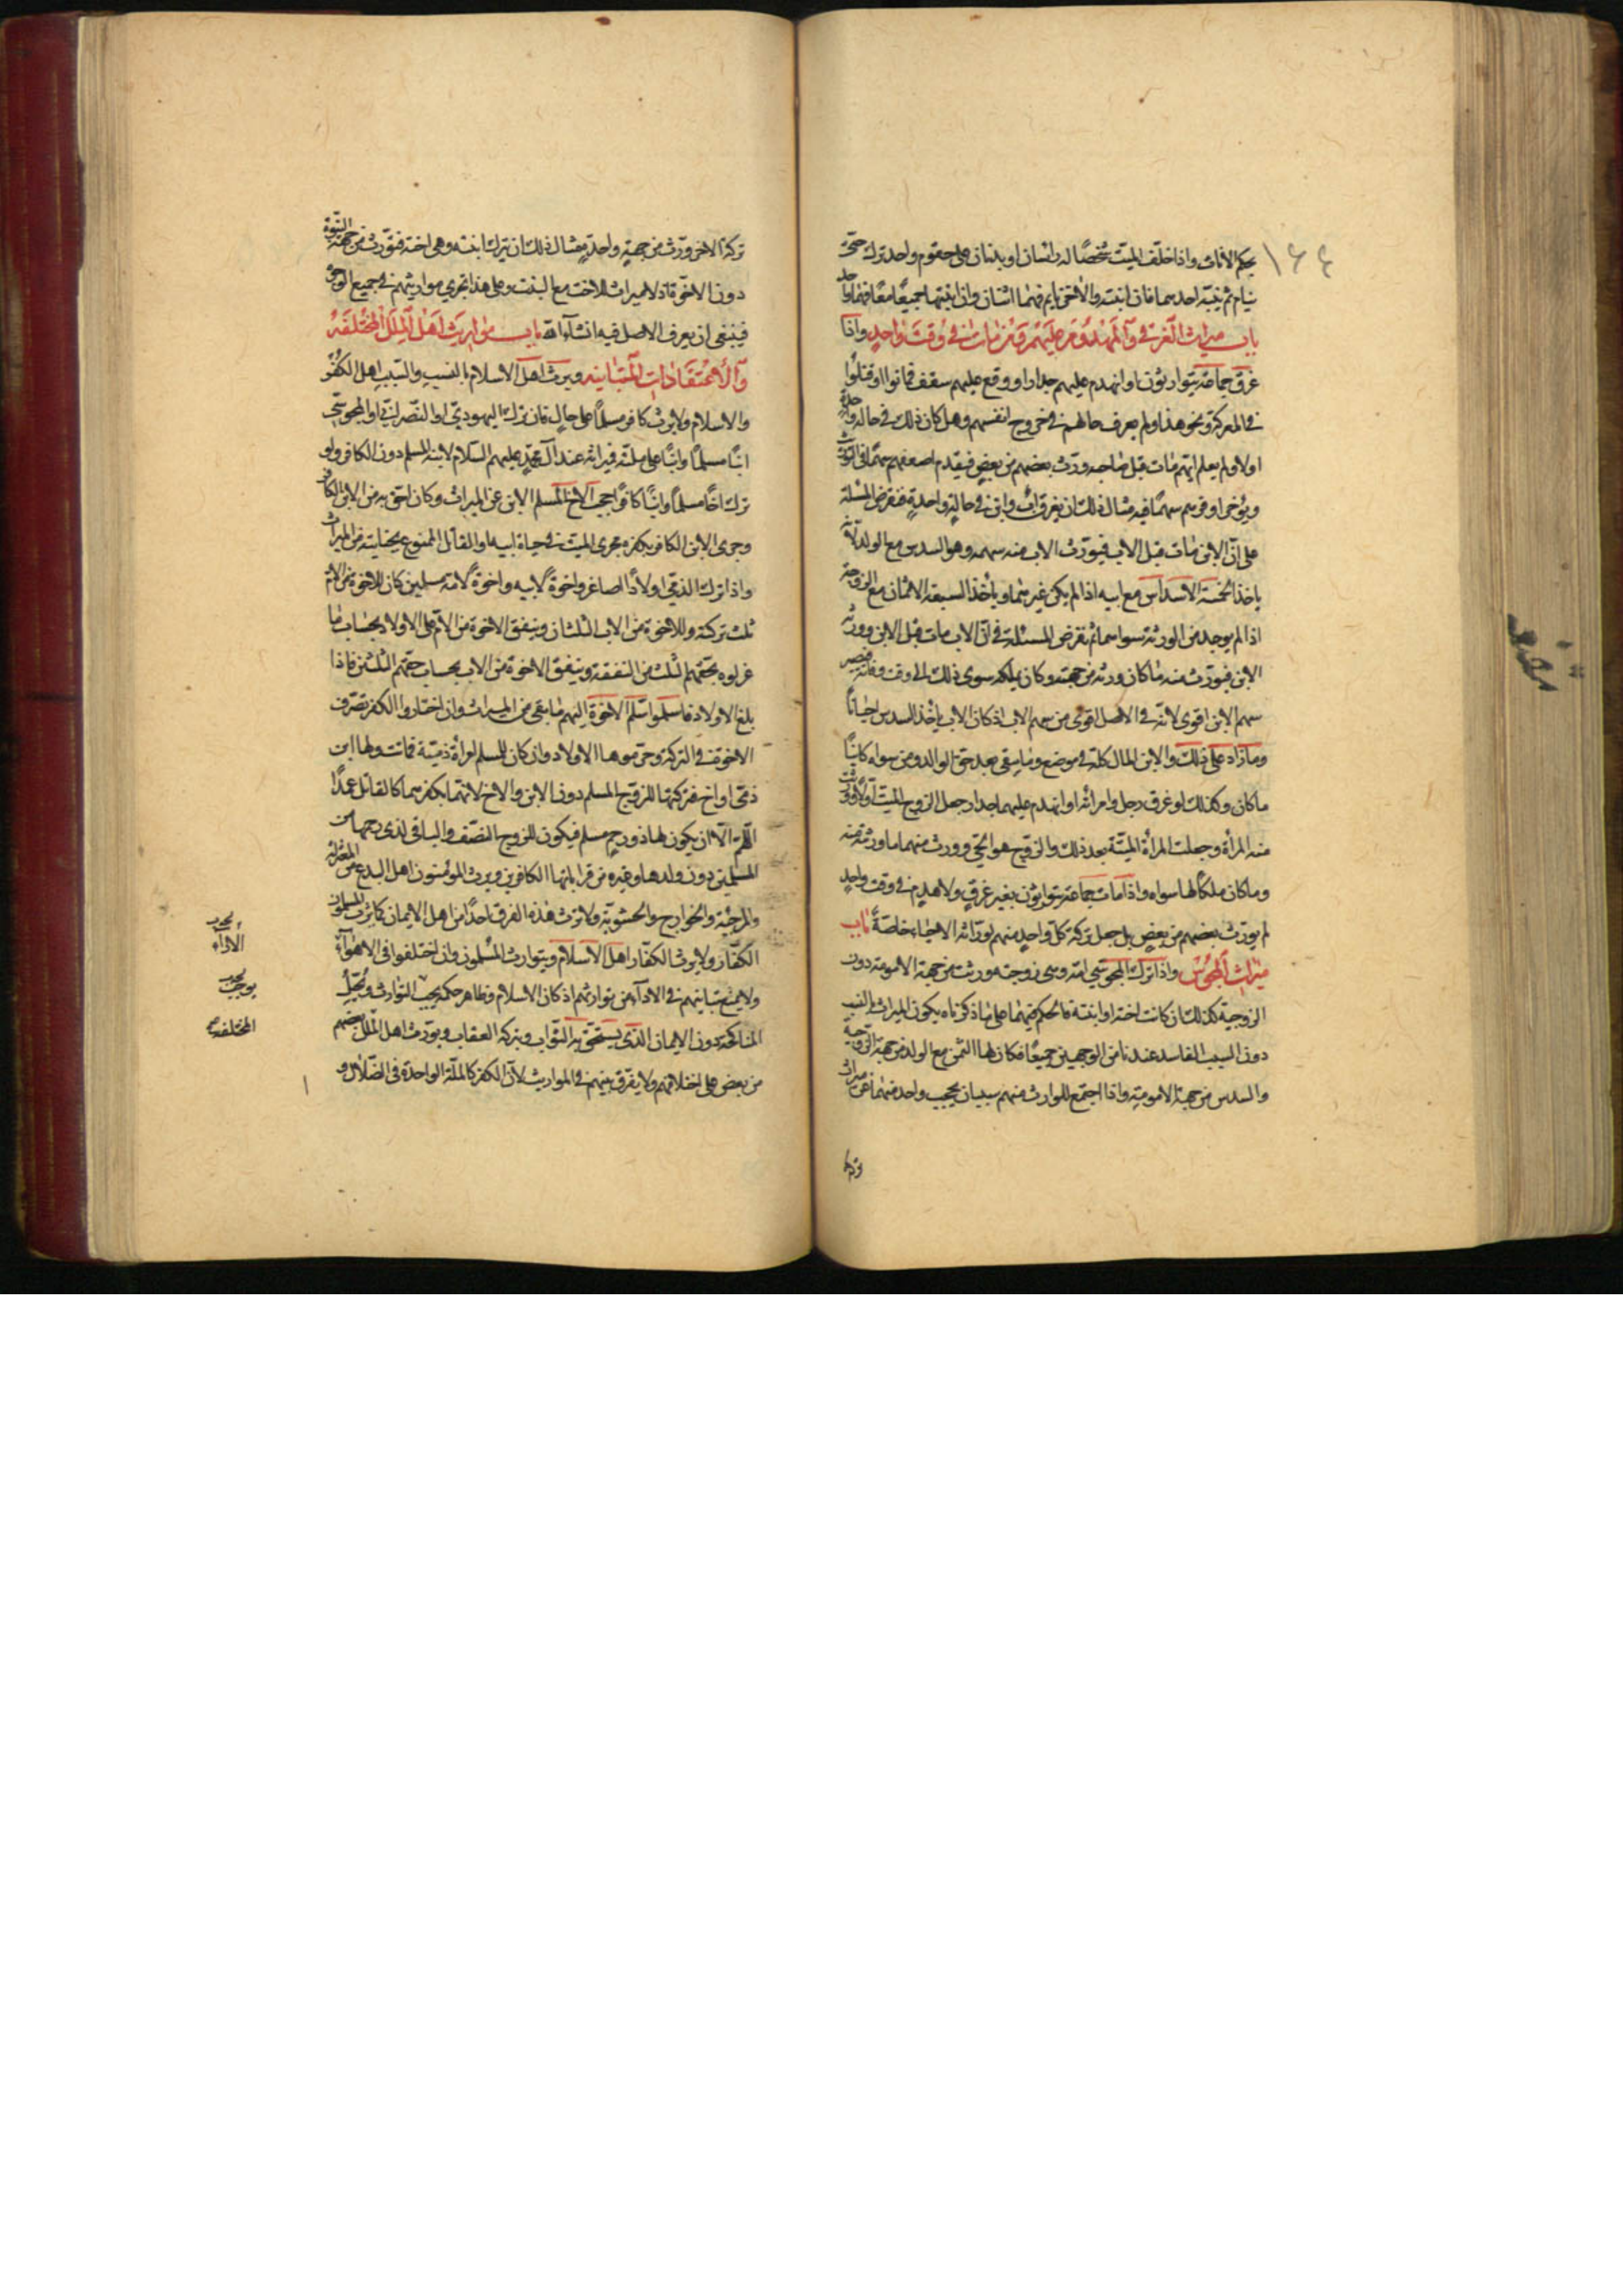 ١٤٤
بحكم الاناث واذا خلّف الميّت شخصًا له راسان او بدنان على حقو واحد ترك حتّى
ينام ثم ينبّه احدهما فان انتبه والاخر نايم فهما اثنان وان انتبها جميعًا معًا فهما واحد
باب ميراث الغرقى والمهدوم عليهم ومن مات في وقت واحد واذا
غرق جماعة يتوارثون او انهدم عليهم جدار او وقع عليهم سقف فماتوا او قتلوا
في المعركة ونحو هذا ولم يعرف حالهم في خروج انفسهم وهل كان ذلك في حالة واحدة
او لا ولم يعلم ايّهم مات قبل صاحبه ورّث بعضهم من بعض فيقدم اضعفهم سهمًا في التوريث
ويؤخر اوفرهم سهمًا فيه مثال ذلك ان يغرق اب وابن في حالة واحدة فنفرض المسئلة
على انّ الابن مات قبل الاب فيورّث الاب منه سهمه وهو السدس مع الولد لانّه
ياخذ الخمسة الاسداس مع ابيه اذا لم يكن غيرهما وياخذ السبعة الاثمان مع الزوجة
اذا لم يوجد من الورثة سواهما ثم نفرض المسئلة في انّ الاب مات قبل الابن وورثه
الابن فيورّث منه ما كان ورثه من جهته وكان يملكه سوى ذلك الى وقت وفاته فيصير
سهم الابن اقوى لانّه في الاصل اقوى من سهم الاب اذ كان الاب ياخذ السدس احيانًا
وما زاد على ذلك والابن المال كلّه في موضع وما يبقى بعد حق الوالد ومن سواه كائنًا
ما كان وكذلك لو غرق رجل وامرائه او انهدم عليهما جدار جعل الزوج الميّت اولًا وورث
منه المرأة وجعلت المرأة الميّتة بعد ذلك والزوج هو الحيّ وورث منها ما ورثته منه
وما كان ملكًا لها سواه واذا مات جماعة يتوارثون بغير غرق ولا هدم في وقت واحد
لم يورّث بعضهم من بعض بل جعل تركة كلّ واحد منهم لورّاثه الاحياء خاصّة باب
ميراث المجوس واذا ترك المجوسي امّه وهي زوجته ورثت من جهة الامومة دون
الزوجية كذلك ان كانت اخته او ابنته فالحكم فيهما على ما ذكرناه يكون الميراث بالنسب
دون السبب الفاسد عندنا من الوجهين جميعًا فكان لها الثمن مع الولد من جهة الزوجية
والسدس من جهة الامومة واذا اجتمع للوارث منهم سببان يحجب واحد منهما عن ميراث
تركة
تركة الاخر ورّث من جهة واحدة مثال ذلك ان يترك ابنته وهي اخته فتورّث من جهة البنوّة
دون الاخوّة اذ لا ميراث للاخت مع البنت وعلى هذا تجري مواريثهم في جميع الوجوه
فينبغي ان يعرف الاصل فيه انشاء الله باب مواريث اهل الملل المختلفة
والاعتقادات المتباينة ويرث اهل الاسلام بالنسب والسبب اهل الكفر
والاسلام ولا يرث كافر مسلمًا على حال فان ترك اليهوديّ او النصرانيّ او المجوسيّ
ابنًا مسلمًا وابنًا على ملّته فميراثه عند آل محمّد عليهم السّلام لابنه المسلم دون الكافر ولو
ترك اخًا مسلمًا وابنًا كافرًا حجب الاخ المسلم الابن عن الميراث وكان احق به من الابن الكافر
وجرى الابن الكافر بكفره مجرى الميت في حياة ابيه او القاتل الممنوع بجنايته من الميراث
واذا ترك الذمّي اولادًا اصاغر واخوة لابيه واخوة لامه مسلمين كان للاخوة من الام
ثلث تركته وللاخوة من الاب الثلثان وينفق الاخوة من الام على الاولاد بحساب ما
غرموه بحقهم الثلث من النفقة وينفق الاخوة من الاب بحساب حقهم الثلثين فاذا
بلغ الاولاد فاسلموا سلم الاخوة اليهم ما بقي من الميراث وان اختاروا الكفر تصرّف
الاخوة في التركة وحرموها الاولاد وان كان للمسلم امرأة ذميّة فماتت ولها ابن
ذمّي او اخ فتركتها للزوج المسلم دون الابن والاخ لانهما بكفرهما كالقاتل عمدًا
اللّهم الّا ان يكون لها ذو رحم مسلم فيكون للزوج النصف والباقي لذي رحمها من
المسلمين دون ولدها وغيره من قراباتها الكافرين ويرث المؤمنون اهل البدع من المعتزلة
والمرجئة والخوارج والحشويّة ولا ترث هذه الفرق احدًا من اهل الايمان كما يرث المسلمون
الكفّار ولا يرث الكفّار اهل الاسلام ويتوارث المسلمون وان اختلفوا في الاهواء
ولا يمنع تباينهم في الاداء من توارثهم اذ كان الاسلام وظاهر حكمه يجب التوارث ويحل
المناكحة دون الايمان الذي يستحق به الثواب وبتركه العقاب ويورّث اهل الملل بعضهم
من بعض على اختلافهم ولا يفرق بينهم في المواريث لانّ الكفر كالملّة الواحدة في الضلال و
يوجب
المختلفة